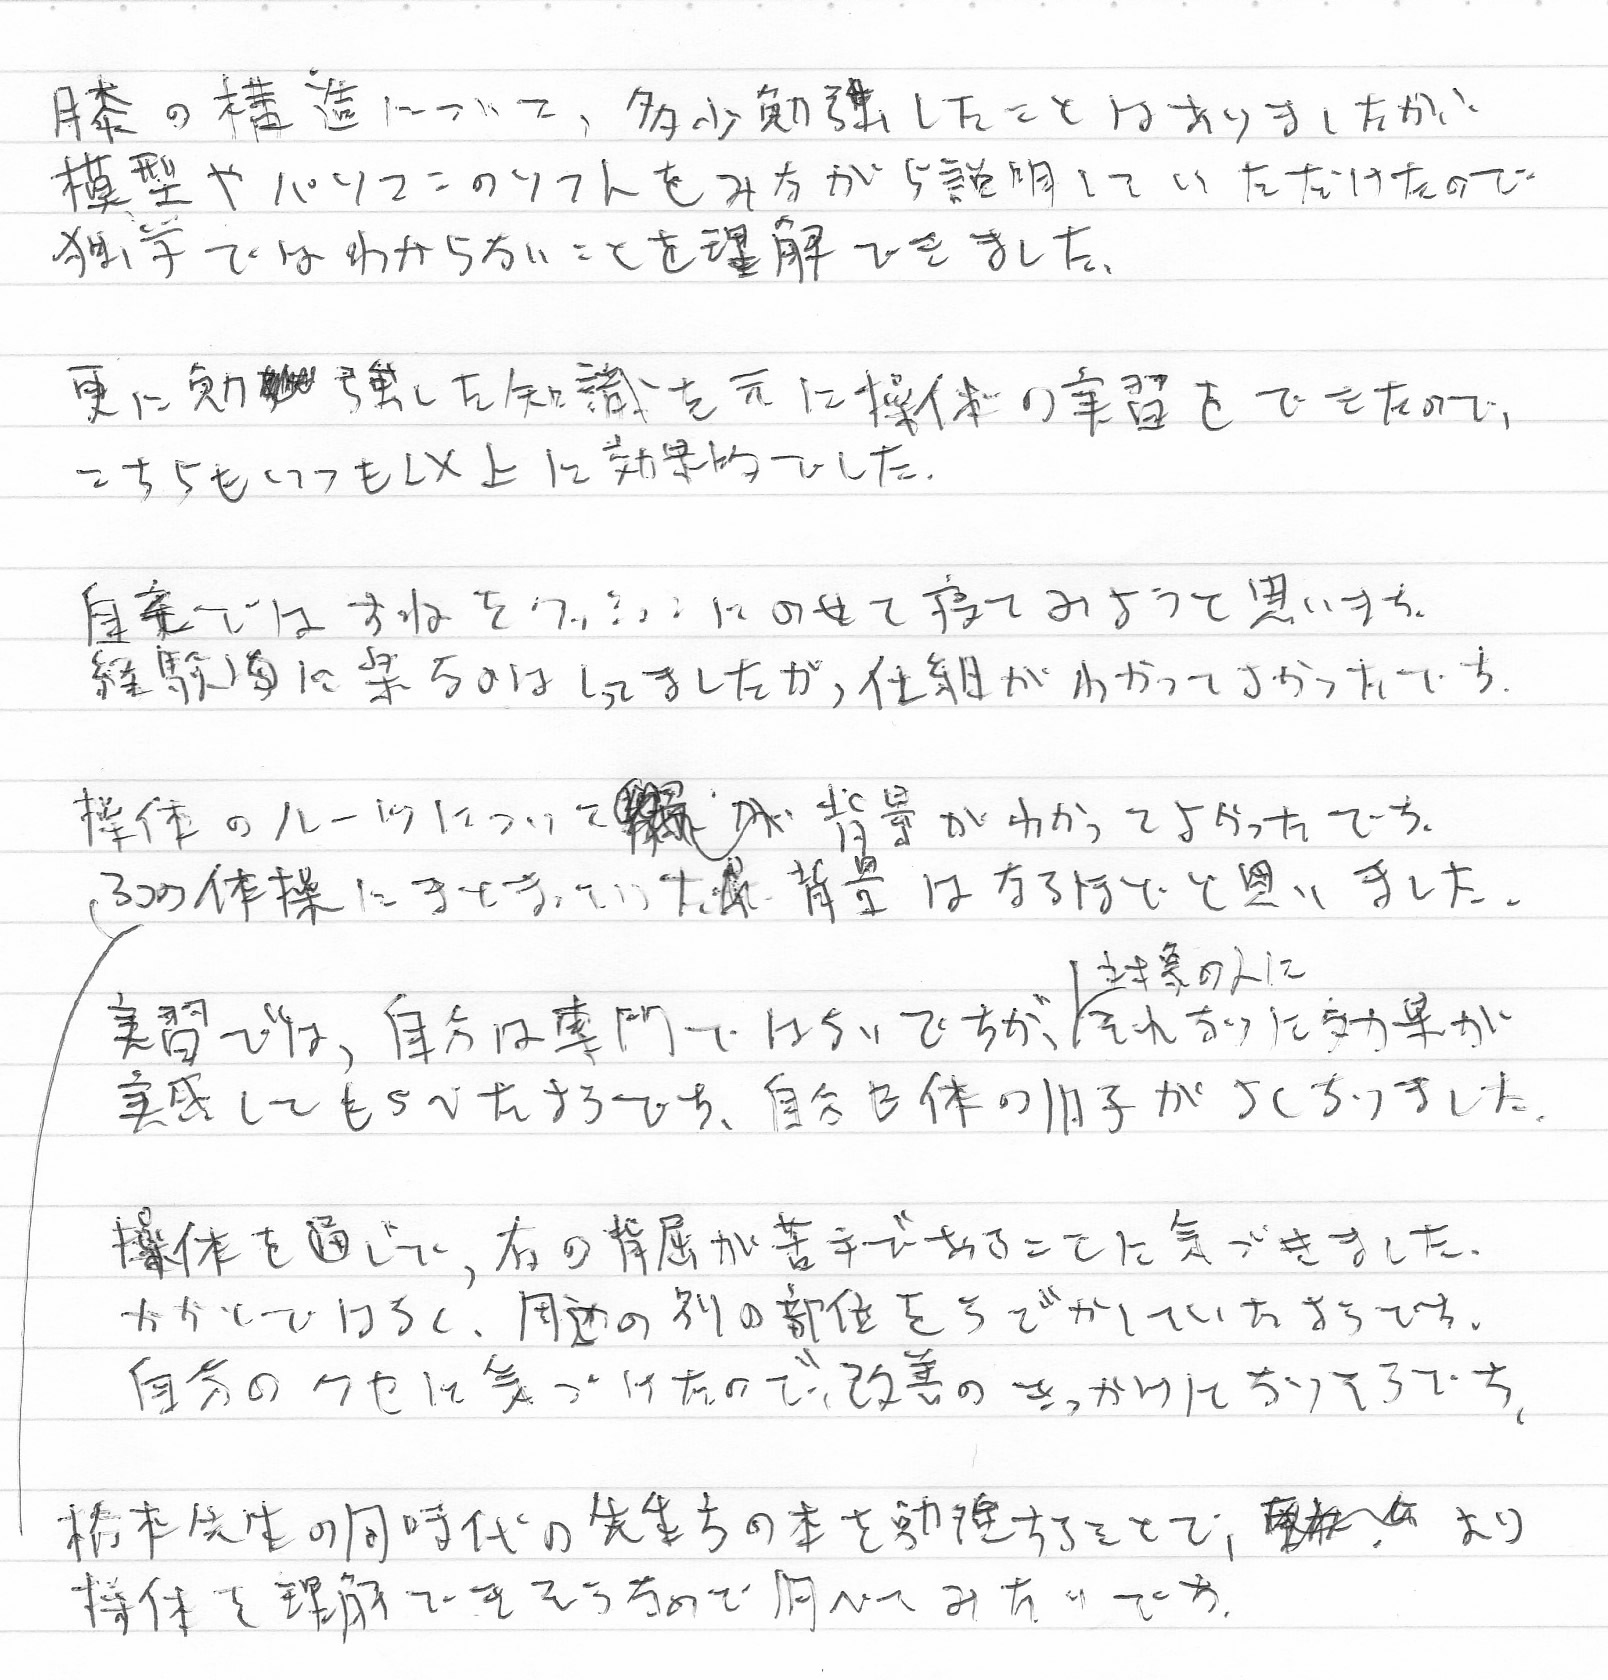 膝の構造について、多少勉強したことはありましたが
模型やパソコンのソフトをみながら説明していただけたので
独学ではわからないことを理解できました。
更に勉強した知識を元に操体の実習をできたので、
こちらもいつも以上に効果的でした。
自宅ではすねをクッションにのせて寝てみようと思います。
経験的に楽なのはしってましたが、仕組がわかってよかったです。
操体のルーツについて が 背景がわかってよかったです。
3つの体操にまとまっていった 背景はなるほどと思いました。
対象の人に
実習では、自分は専門ではないですが、それなりに効果が
実感してもらえたようです、自分も体の調子がよくなりました。
操体を通じて、右の背屈が苦手であることに気づきました。
かかとではなく、周辺の別の部位をうごかしていたようです。
自分のクセに気づけたので、改善のきっかけになりそうです、
橋本先生の同時代の先生方の本を勉強することで、より
操体を理解できそうなので調べてみたいです。